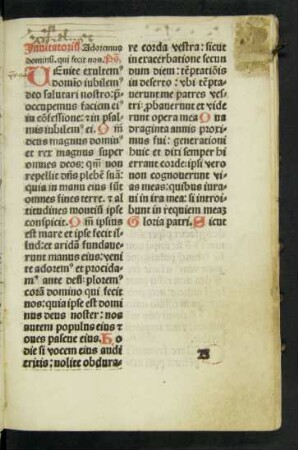 Inuitatoriũ. Adoremus
dominũ. qui fecit nos. Ps̃.
Uenite exultem9
domino iubilem9
deo salutari nostro: p̃
occupemus faciem ei9
in cõfessione: ⁊ in psal
mis iubilem9 ei. Qm̃
deus magnus domin9
et rex magnus super
omnes deos: qm̃ non
repellit dñs plebẽ suã:
quia in manu eius sũt
omnes fines terre. ⁊ al
titudines montiũ ipse
conspicit. Qm̃ ipsius
est mare et ipse fecit il
lud: et aridã fundaue
runt manus eius: veni
te adorem9 et procida
m9 ante deũ: plorem9
corã domino qui fecit
nos: quia ipse est domi
nus deus noster: nos
autem populus eius ⁊
oues pascue eius. Ho
die si vocem eius audi
eritis: nolite obdura-
re corda vestra: sicut
in exacerbatione secun
dum diem: tẽptatiõis
in deserto: vbi tẽpta
uerunt me patres ves
tri: ꝓbauerunt et vide
runt opera mea. Qua
draginta annis proxi
mus fui: generationi
huic et dixi semper hi
errant corde: ipsi vero
non cognouerunt vi
as meas: quibus iura
ui in ira mea: si introi
bunt in requiem meaꝫ
Gloria patri. Sicut